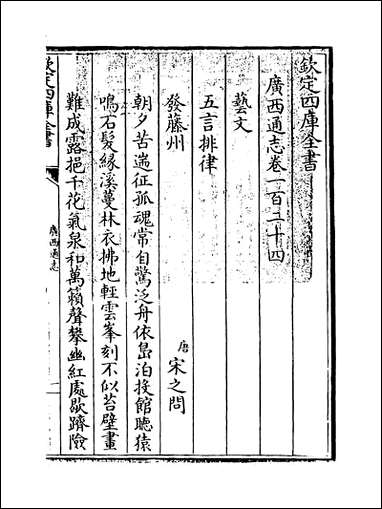 欽定四庫全書
廣西通志卷一百二十四
藝文
五言排律
發藤州
唐 宋之問
朝夕苦遄征孤魂常自驚泛舟依島泊投館聽猿
鳴石髮緣溪蔓林衣拂地輕雲峯刻不似苔壁畫
難成露挹千花氣泉和萬籟聲攀幽紅處歇躋險
欽定四庫全書
廣西通志
一